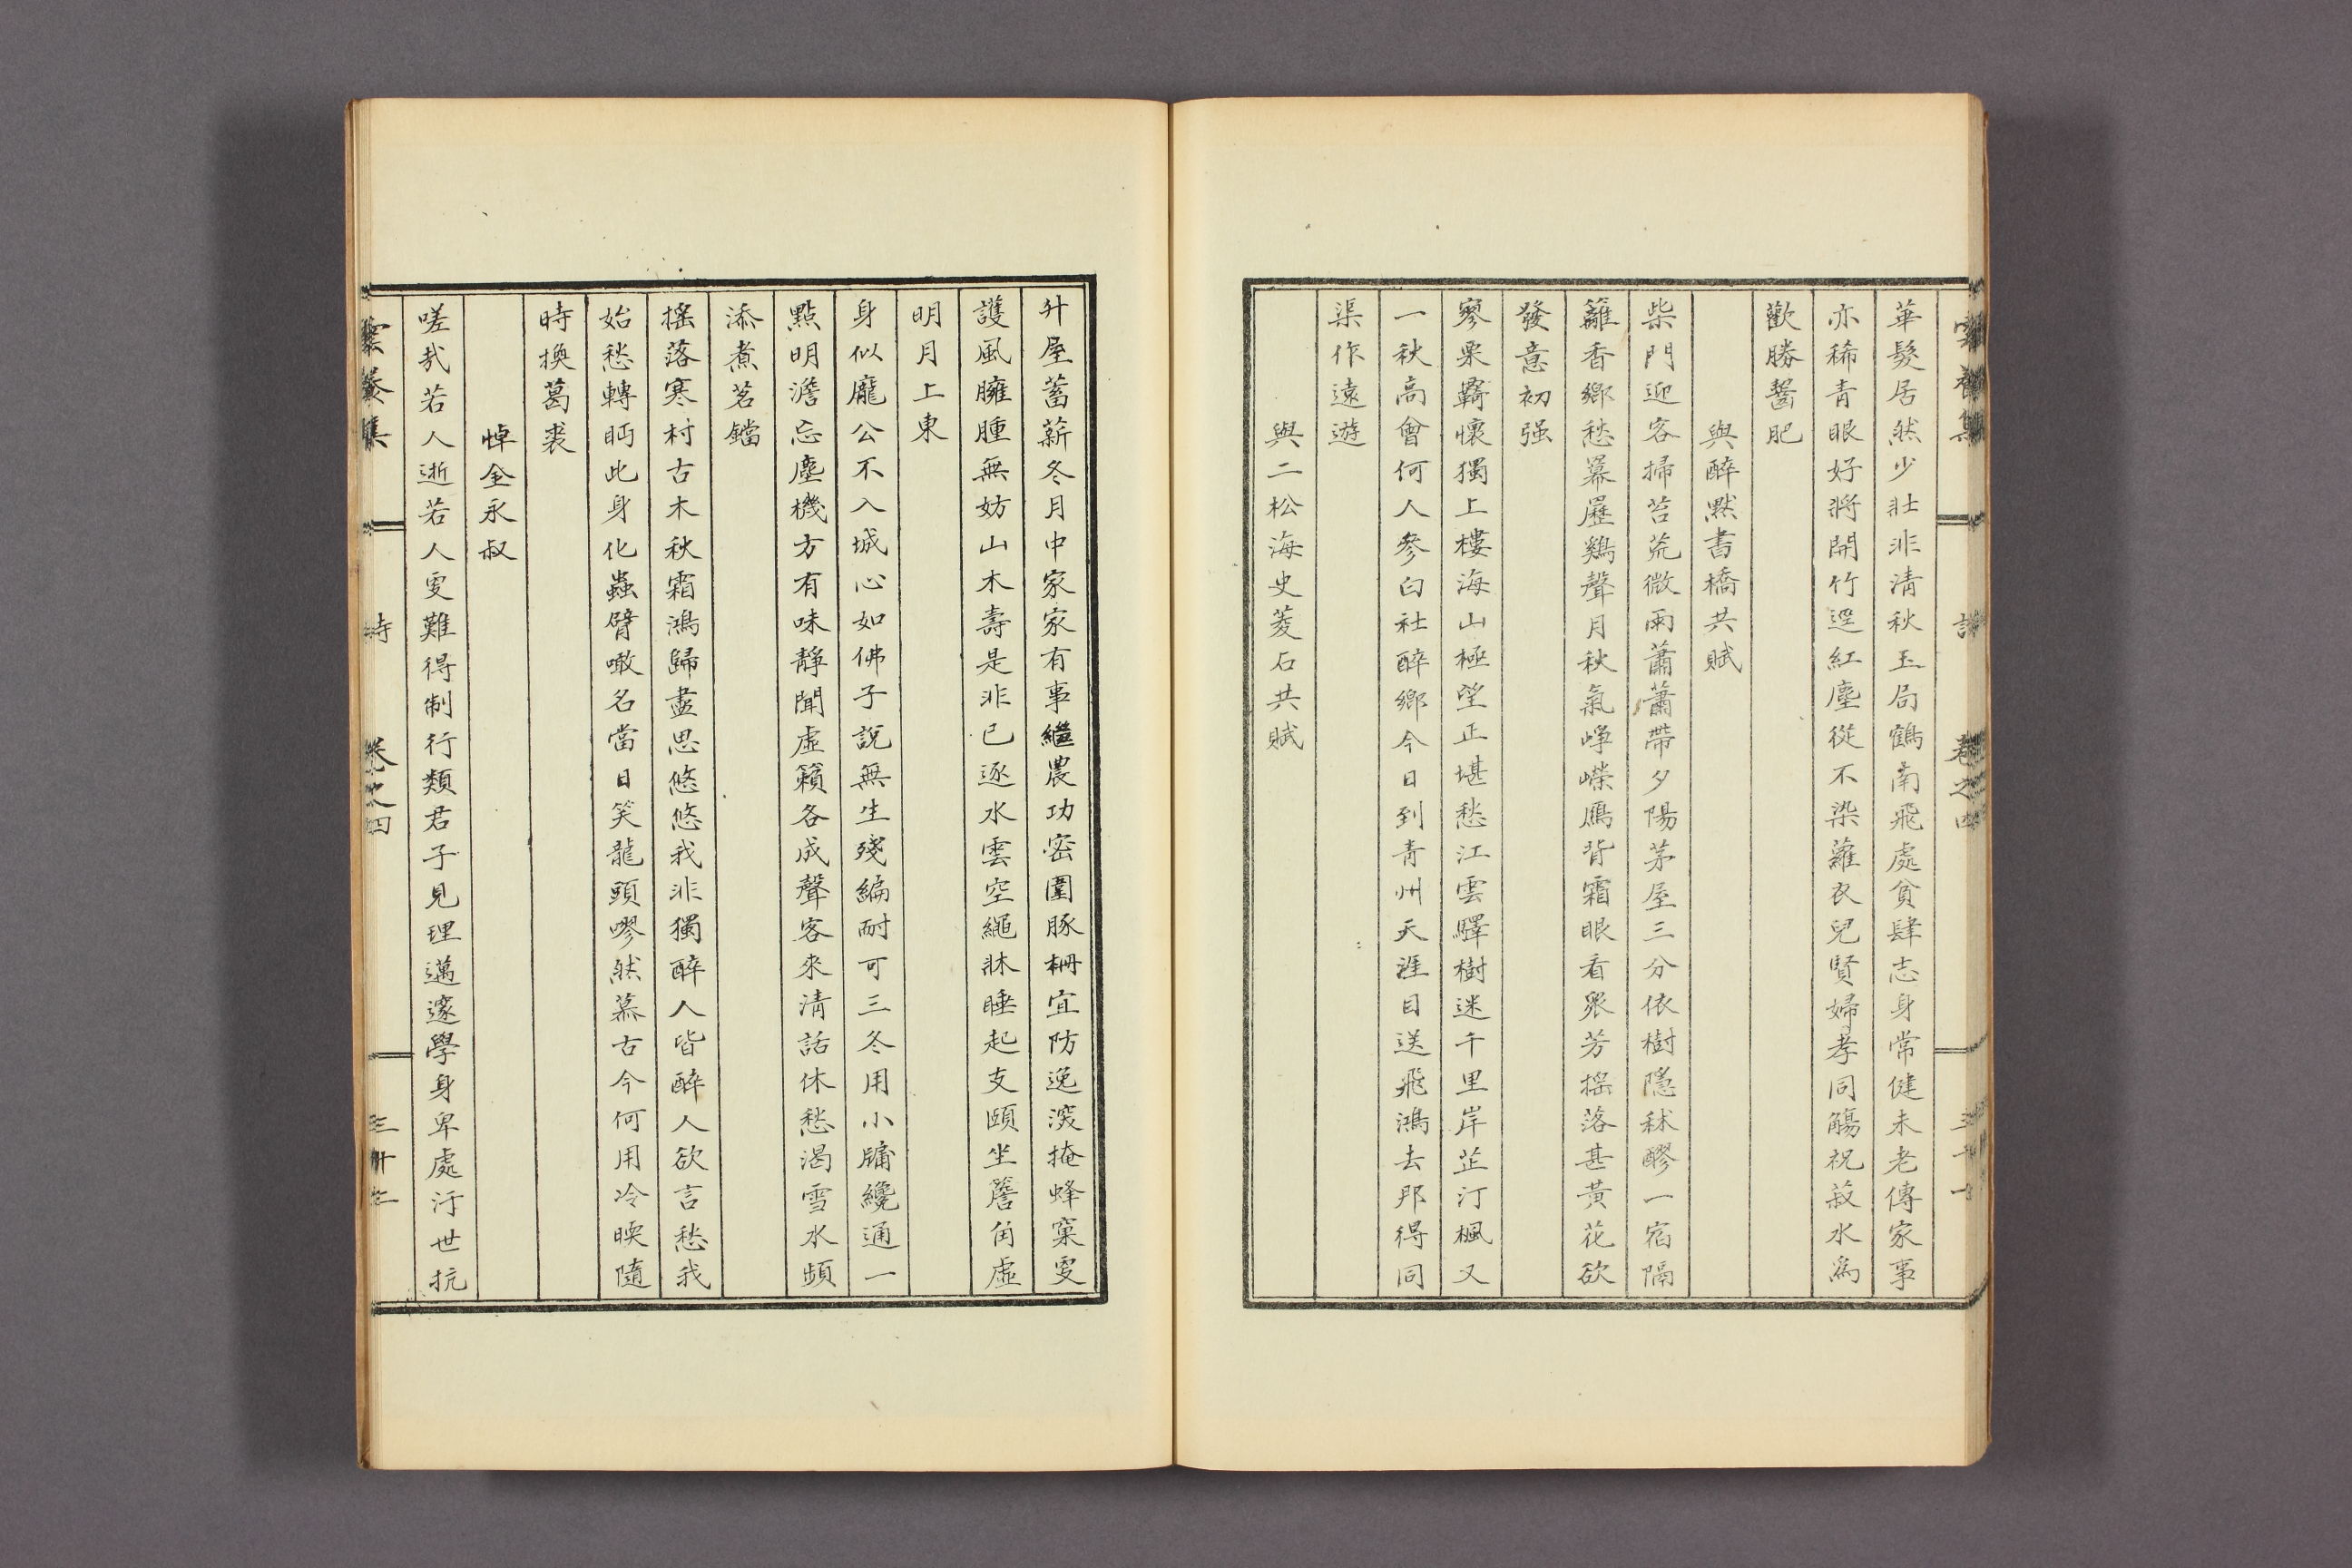 華髮居然少壯非淸秋玉局鶴南飛處貧肆志身常健未老傳家事
亦稀靑眼好將開竹逕紅塵從不染蘿衣兒賢婦孝同觴祝菽水爲
歡勝醬肥
與醉默書橋共賦
柴門迎客掃苔荒微雨蕭蕭帶夕陽茅屋三分依樹隱秫醪一宿隔
籬香鄕愁羃䍥鷄聲月秋氣崢嶸鴈背霜眼看衆芳搖落甚黃花欲
發意初强
寥栗羈懷獨上樓海山極望正堪愁江雲驛樹迷千里岸芷汀楓又
一秋高會何人參白社醉鄕今日到靑州天涯目送飛鴻去那得同
渠作遠遊
與二松海史菱石共賦
升屋蓄薪冬月中家家有事繼農功密圍豚柵宜防逸深掩蜂窠要
護風臃腫無妨山木壽是非已逐水雲空繩牀睡起支頤坐簷角虛
明月上東
身似龐公不入城心如佛子說無生殘編耐可三冬用小牖纔通一
點明澹忘塵機方有味靜聞虛籟各成聲客來淸話休愁渴雪水頻
添煮茗鐺
搖落寒村古木秋霜鴻歸盡思悠悠我非獨醉人皆醉人欲言愁我
始愁轉眄此身化蟲臂噉名當日笑龍頭嘐然慕古今何用冷暎隨
時換葛裘
悼金永叔
嗟哉若人逝若人更難得制行類君子見理邁邃學身卑處汙世抗
詩
卷之四